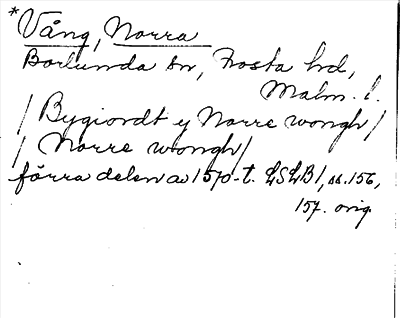 *Vång, Norra
Borlunda sn, Frosta hd,
Malm. l.
/ Bygiordt y Norre wongh /
/ Norre wongh /
förra delen av 1570-t. LSLB 1, ss. 156,
157. orig.